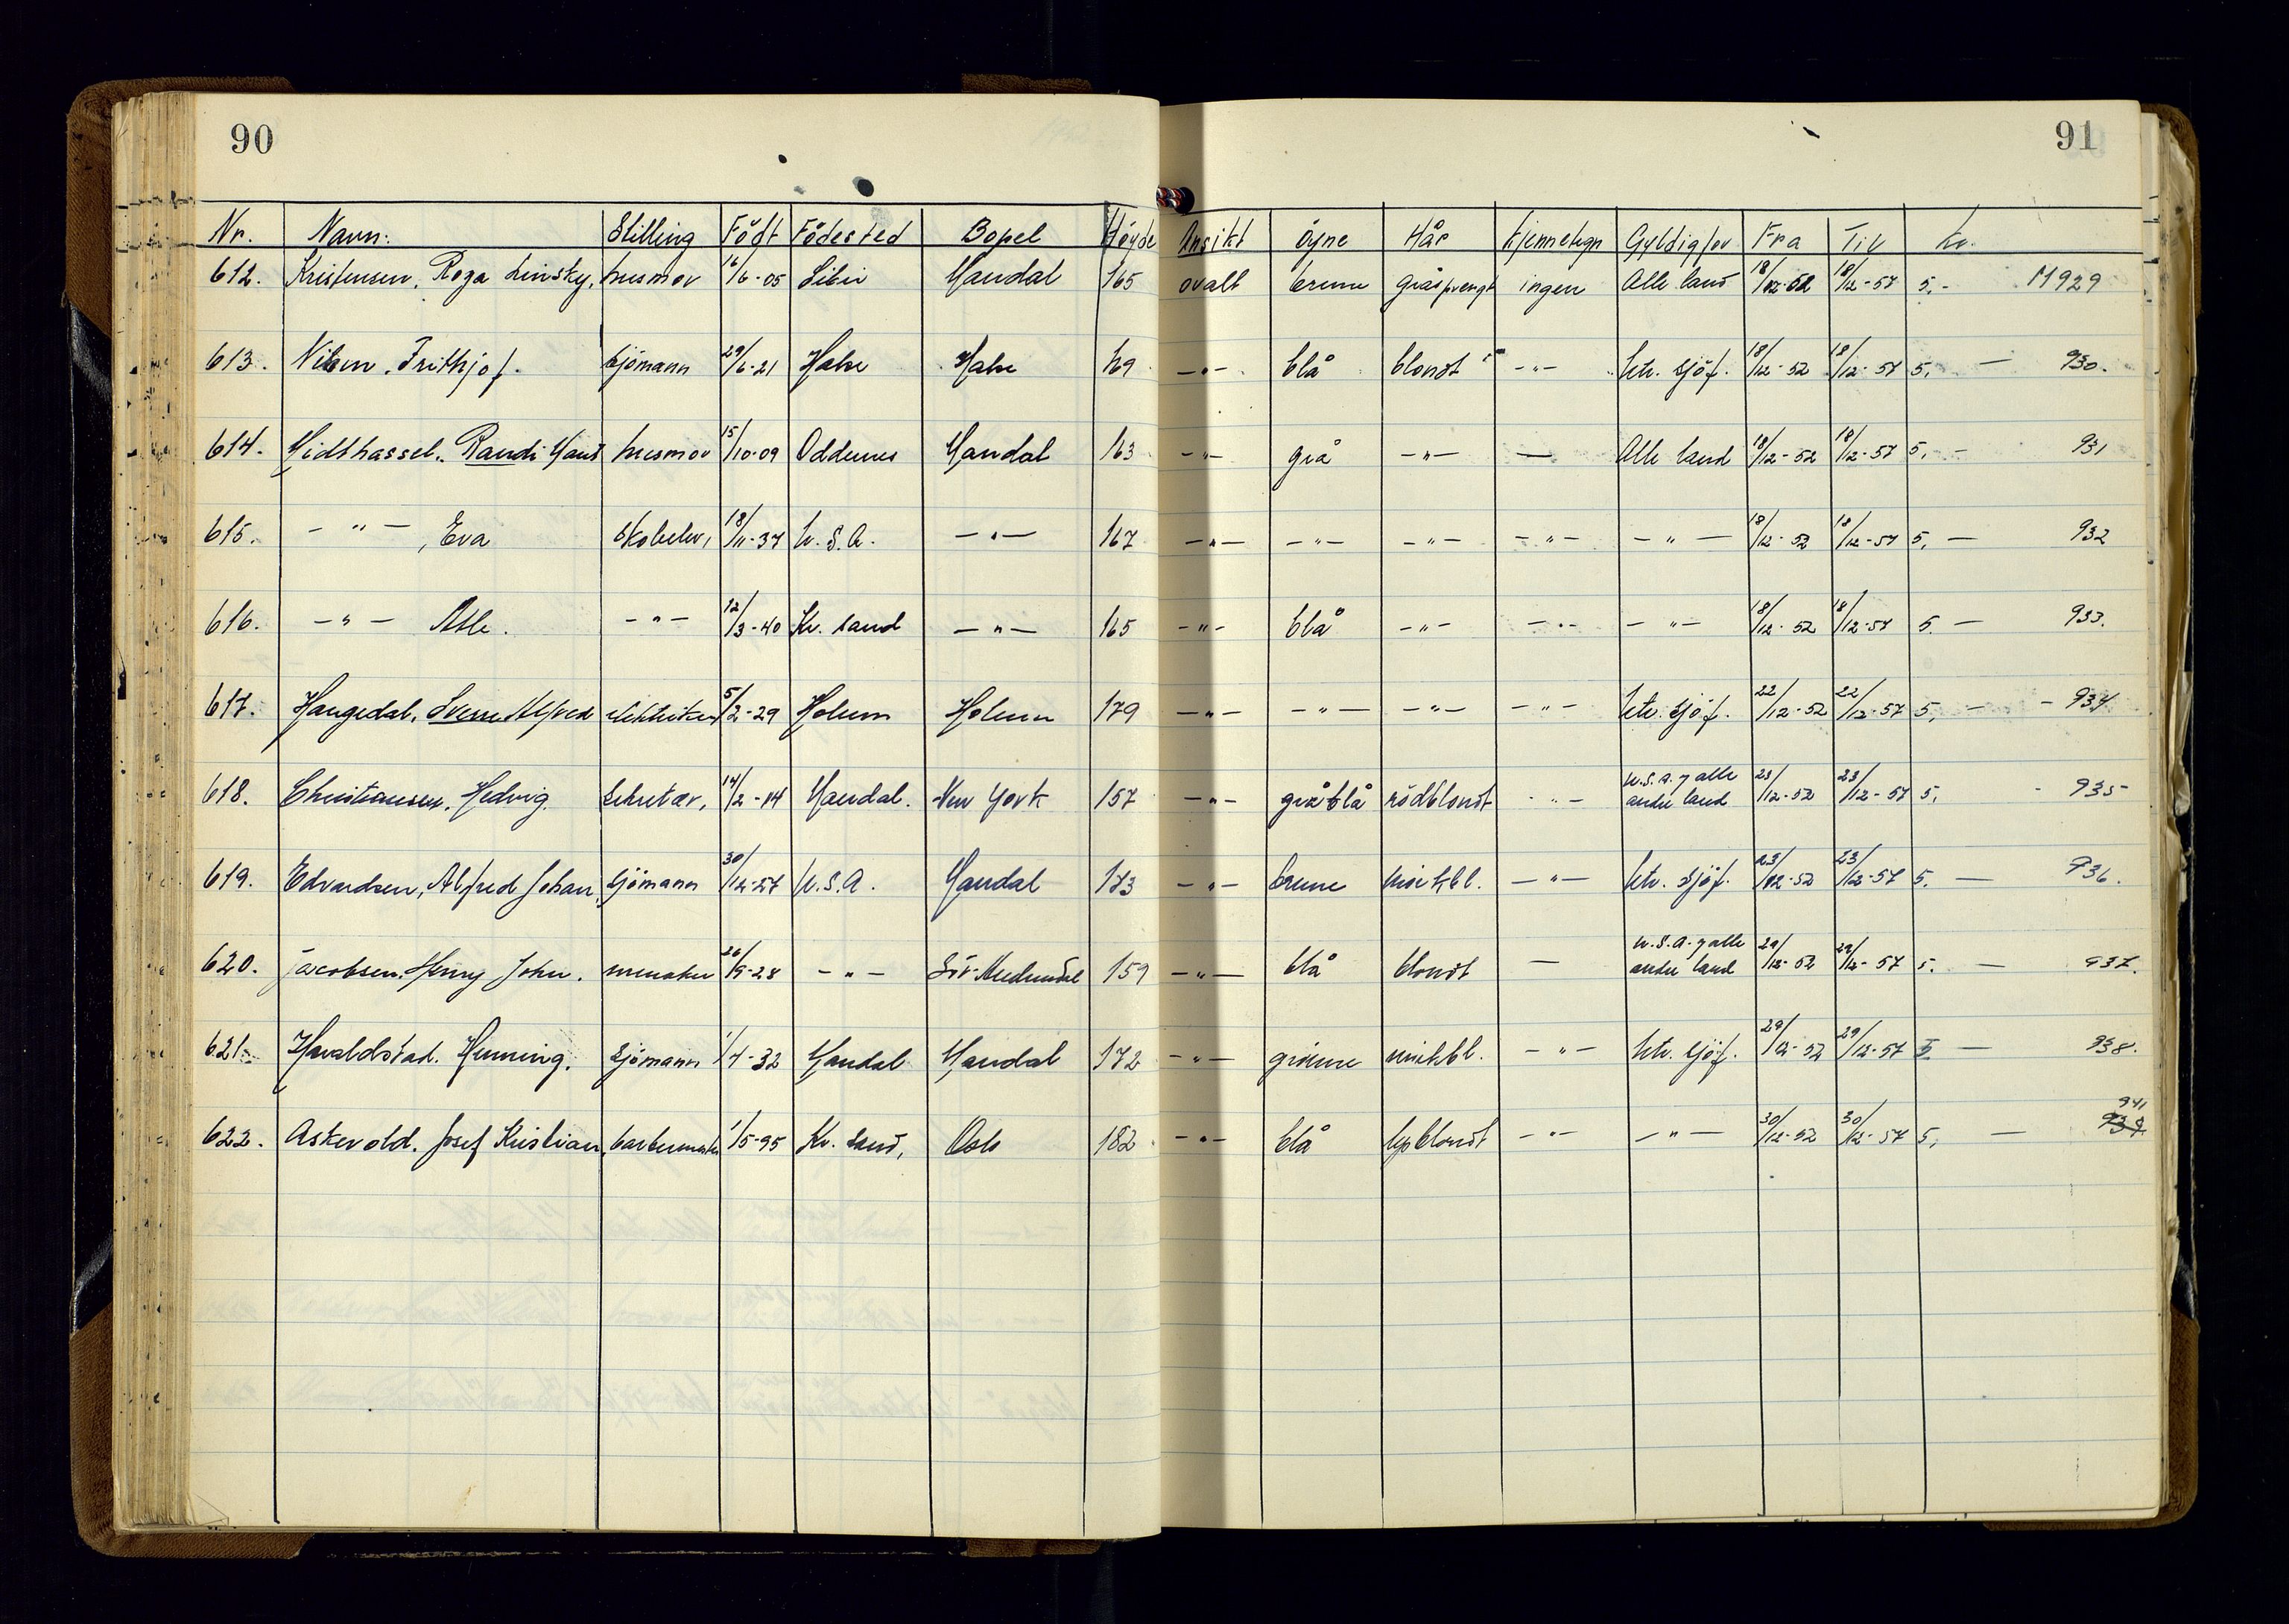 90
91
Nr. Navn: Stilling Født Fødested Bopel Høyde Ansikt Øyne Hår Kjennetegn Gyldig for Fra Til Kr.
612. Kristensen, Roga Linsky, husmor 16/6-05 Mandal 165 ovalt brune gråsprengt ingen Alle land 18/12-52 18/12-57 5.- M 929
613. Frithjof. sjömann 29/6-21 Halse Halse 169 -"- blå blondt -"- utv. sjöf. 18/12-52 18/12-57 5, — 930.
614. Midthassel, Randi husmor 15/10-09 Oddernes Mandal 163 -"- grå -"- — Alle land 18/12-52 18/12-57 5, - 931
615. -"-, Eva skoleelev, 18/11-37 U.S.A. -"- 167 -"- -"- -"- -"- -"- 18/12-52 18/12-57 5, — 932
616. -"- Atle. -"- 12/3-40 Kr. sand -"- 165 -"- blå -"- -"- -"- 18/12-52 18/12-57 5. — 933.
617. Haugedal, Sverre Alfred 5/2-29 Holum Holum 179 -"- -"- -"- -"- utv. sjöf. 22/12-52 22/12-57 5, - 934
618. Christiansen, Hedvig sekretær, 14/2-14 Mandal. New York 157 -"- gråblå rödblondt -"- U.S.A. og alle andre land 23/12-52 23/12-57 5, - 935
619. Edvardsen, Alfred Johan, sjömann 30/12-27 U.S.A. Mandal 173 -"- brune mörkbl. -"- utv. sjöf. 23/12-52 23/12-57 5. — 936.
620. Jacobsen, Henry John. 26/9-28 -"- Sör-Audnedal 159 -"- blå blondt — U.S.A. og alle andre land 29/12-52 29/12-57 5. — 937.
621. Haraldstad. Henning. sjömann 1/4-32 Mandal Mandal 172 -"- grönne mörkbl. -"- utv. sjöf. 29/12-52 29/12-57 5 — 938.
622. Askevold. Josef Kristian, 1/5-95 Kr. sand, Oslo 182 -"- blå lysblondt -"- -"- 30/12-52 30/12-57 5, — 941
939